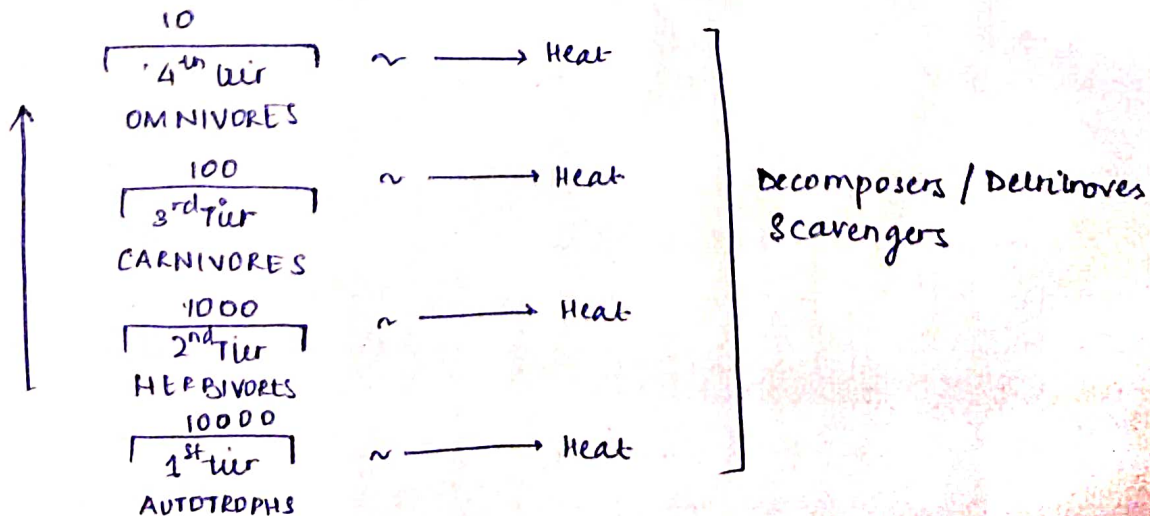 10
4th tier ~ → Heat
OMNIVORES
100
3rd Tier ~ → Heat
CARNIVORES
1000
2nd Tier ~ → Heat
HERBIVORES
10000
1st tier ~ → Heat
AUTOTROPHS
Decomposers / Detritroves
Scavengers